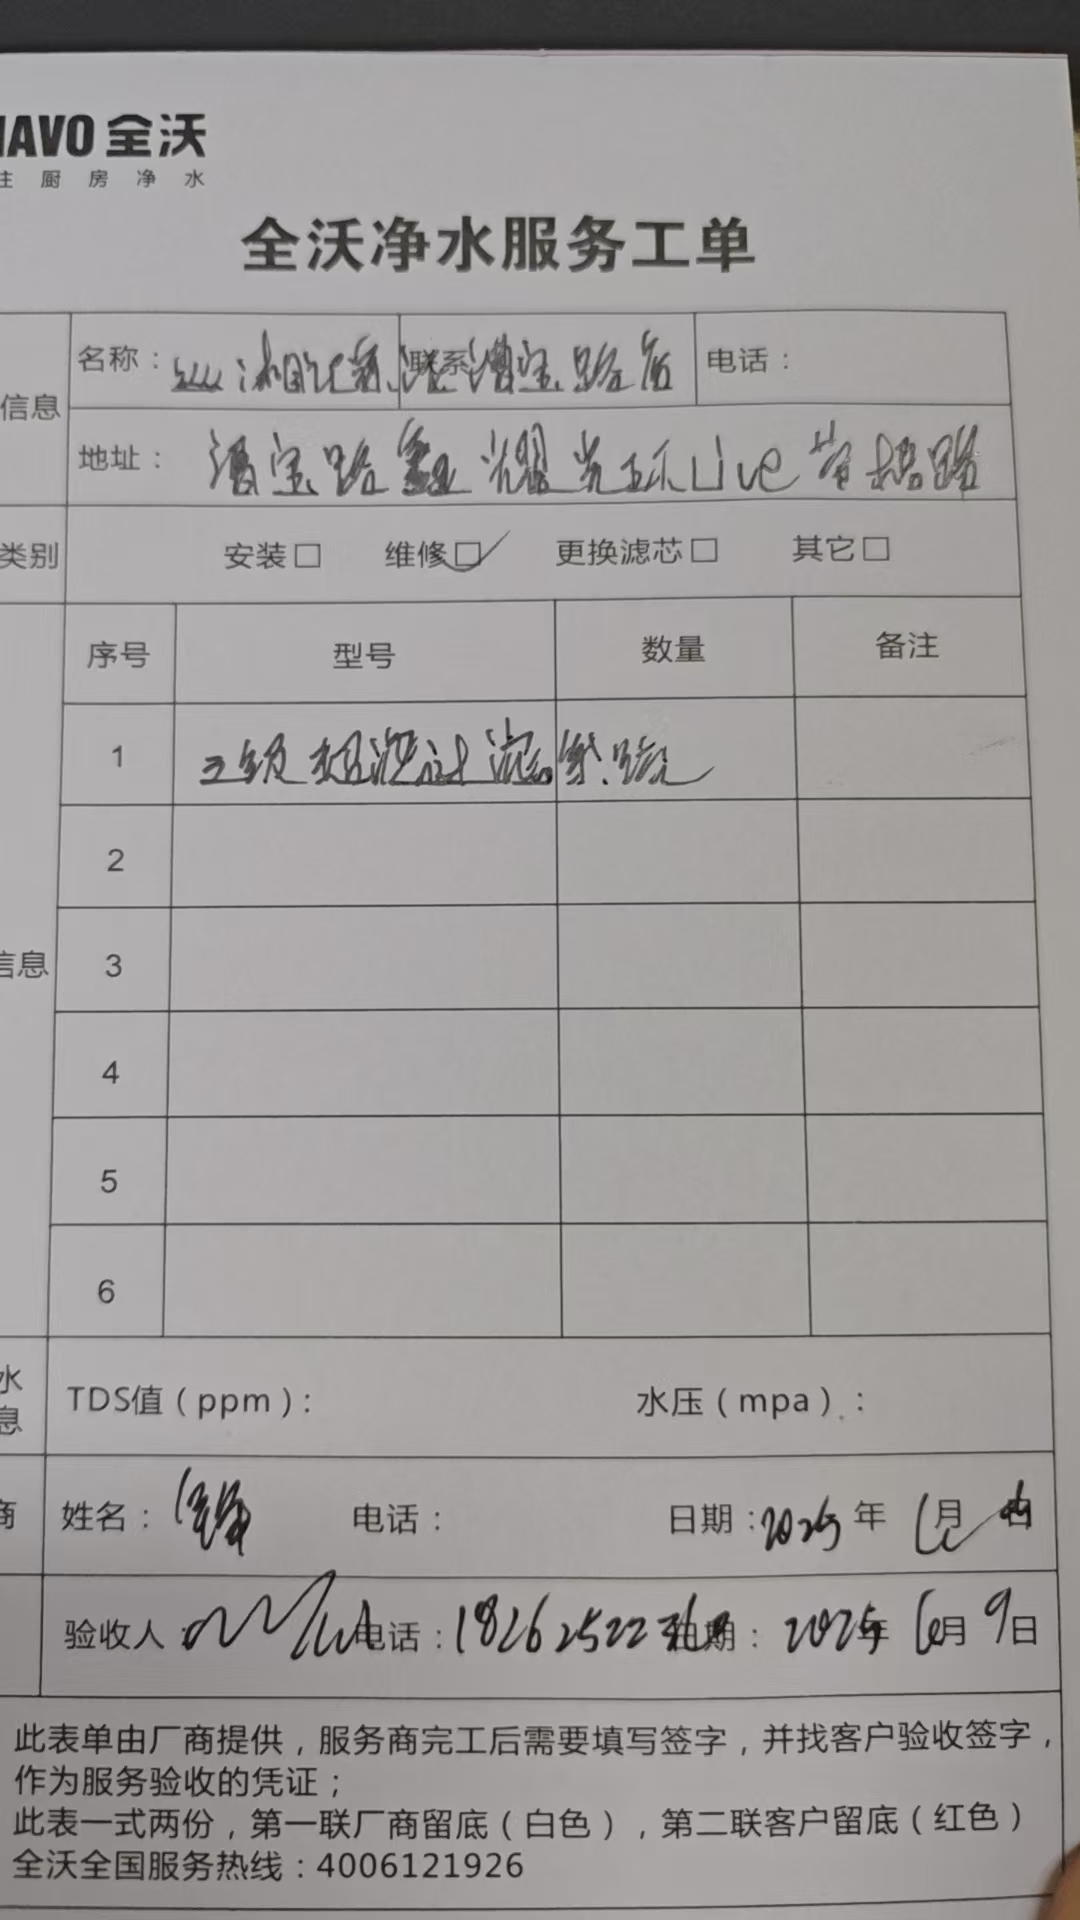 NAVO 全沃
注厨房净水
全沃净水服务工单
信息
名称： 联系 路店 电话：
地址： 宝路鑫耀光环Live 路
类别 安装□ 维修□✓ 更换滤芯□ 其它□
序号 型号 数量 备注
1 三级
2
信息 3
4
5
6
水
息
TDS值（ppm）： 水压（mpa）：
商 姓名： 电话： 日期：2025年 6月 日
验收人： 电话：18262522 日期：2025年 6月9日
此表单由厂商提供，服务商完工后需要填写签字，并找客户验收签字，
作为服务验收的凭证；
此表一式两份，第一联厂商留底（白色），第二联客户留底（红色）
全沃全国服务热线：4006121926